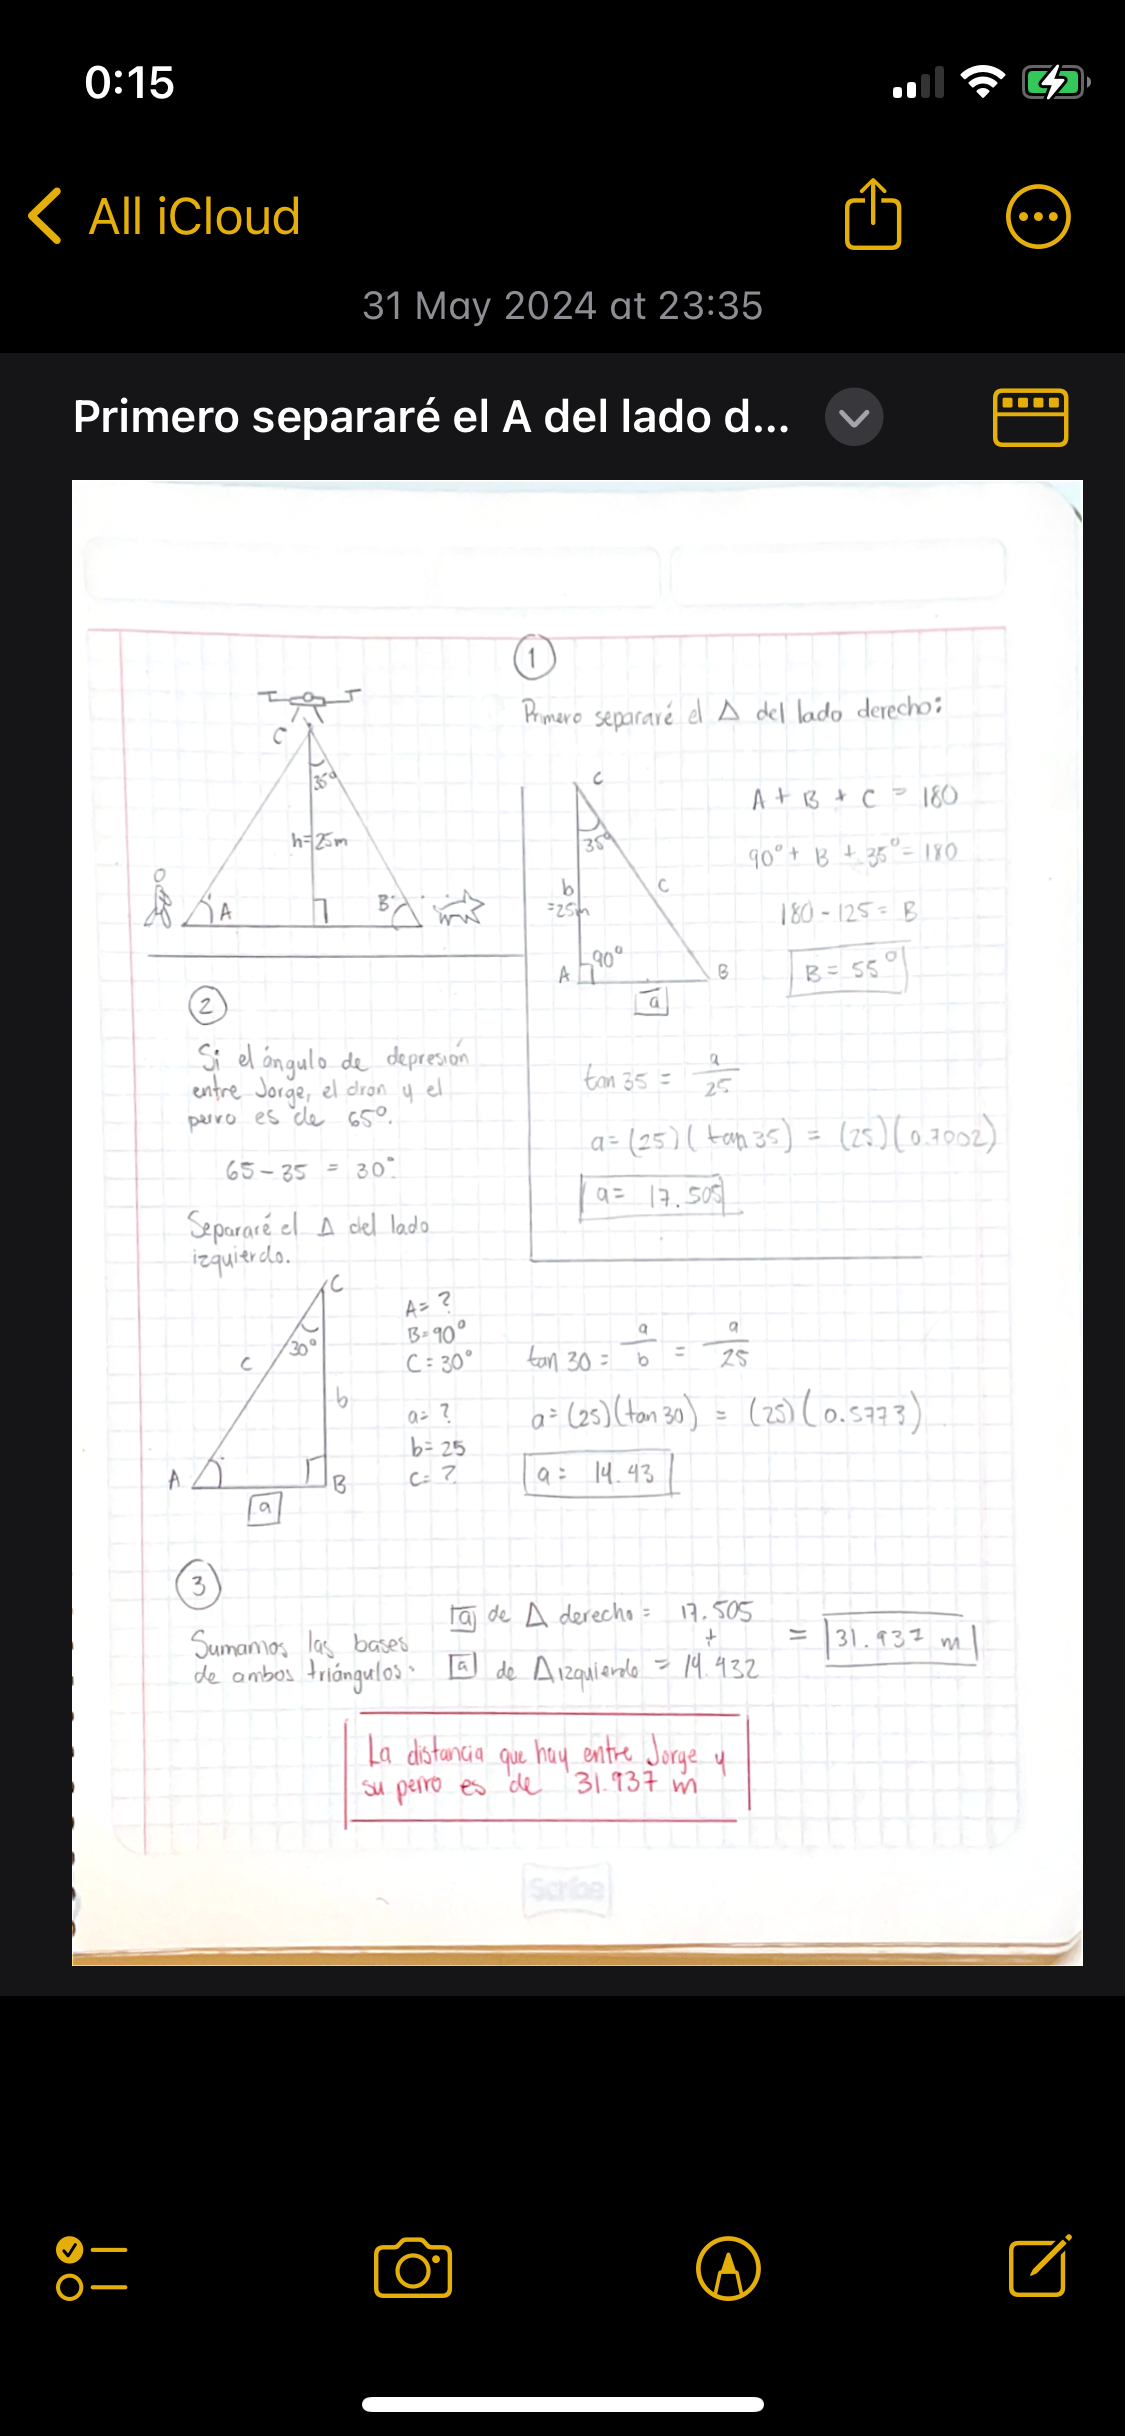 0:15
All iCloud
31 May 2024 at 23:35
Primero separaré el A del lado d...
1
Primero separaré el Δ del lado derecho:
C
35°
h=25m
A
B
C
35°
b
=25m
c
90°
A
B
a
A + B + C = 180
90° + B + 35° = 180
180 - 125 = B
B = 55°
tan 35 = a/25
a = (25)(tan 35) = (25)(0.7002)
a = 17.505
2
Si el ángulo de depresión
entre Jorge, el dron y el
perro es de 65°.
65 - 35 = 30°
Separaré el Δ del lado
izquierdo.
C
30°
c
b
A
B
a
A= ?
B=90°
C=30°
a= ?
b= 25
c= ?
tan 30 = a/b = a/25
a= (25)(tan 30) = (25)(0.5773)
a= 14.43
3
Sumamos las bases
de ambos triángulos.
a de Δ derecho = 17.505
+
a de Δ izquierdo = 14.432
= 31.937 m
La distancia que hay entre Jorge y
su perro es de 31.937 m
Scribe